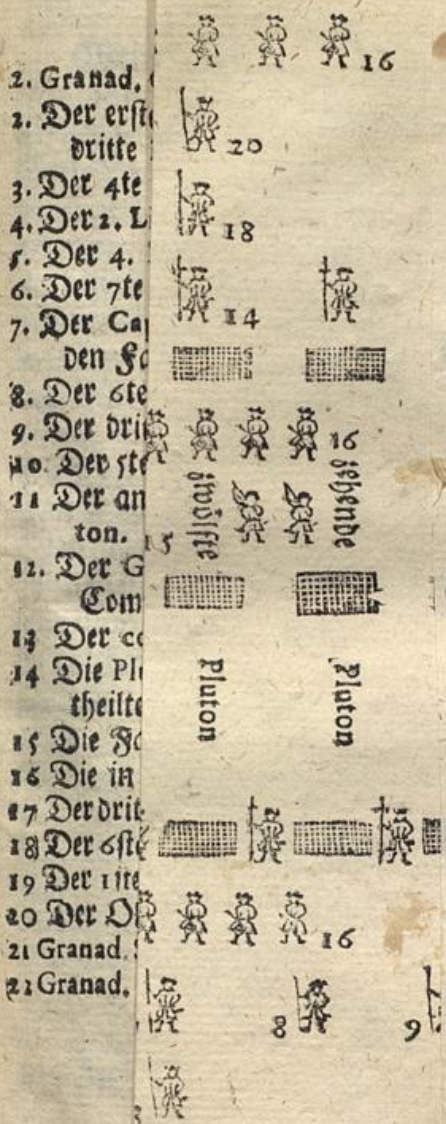 2. Granad.
2. Der erste
dritte
3. Der 4te
4. Der 2. L
5. Der 4.
6. Der 7te
7. Der Cap
den Fa
8. Der 6te
9. Der drit
10. Der 5te
11 Der an
ton.
12. Der G
Com
13 Der co
14 Die Plu
theilte
15 Die Fa
16 Die in
17 Der drit
18 Der 6ste
19 Der 11te
20 Der Ob
21 Granad.
22 Granad.
16
20
18
14
16
zwölffte
zehende
15
Pluton
Pluton
16
8
9